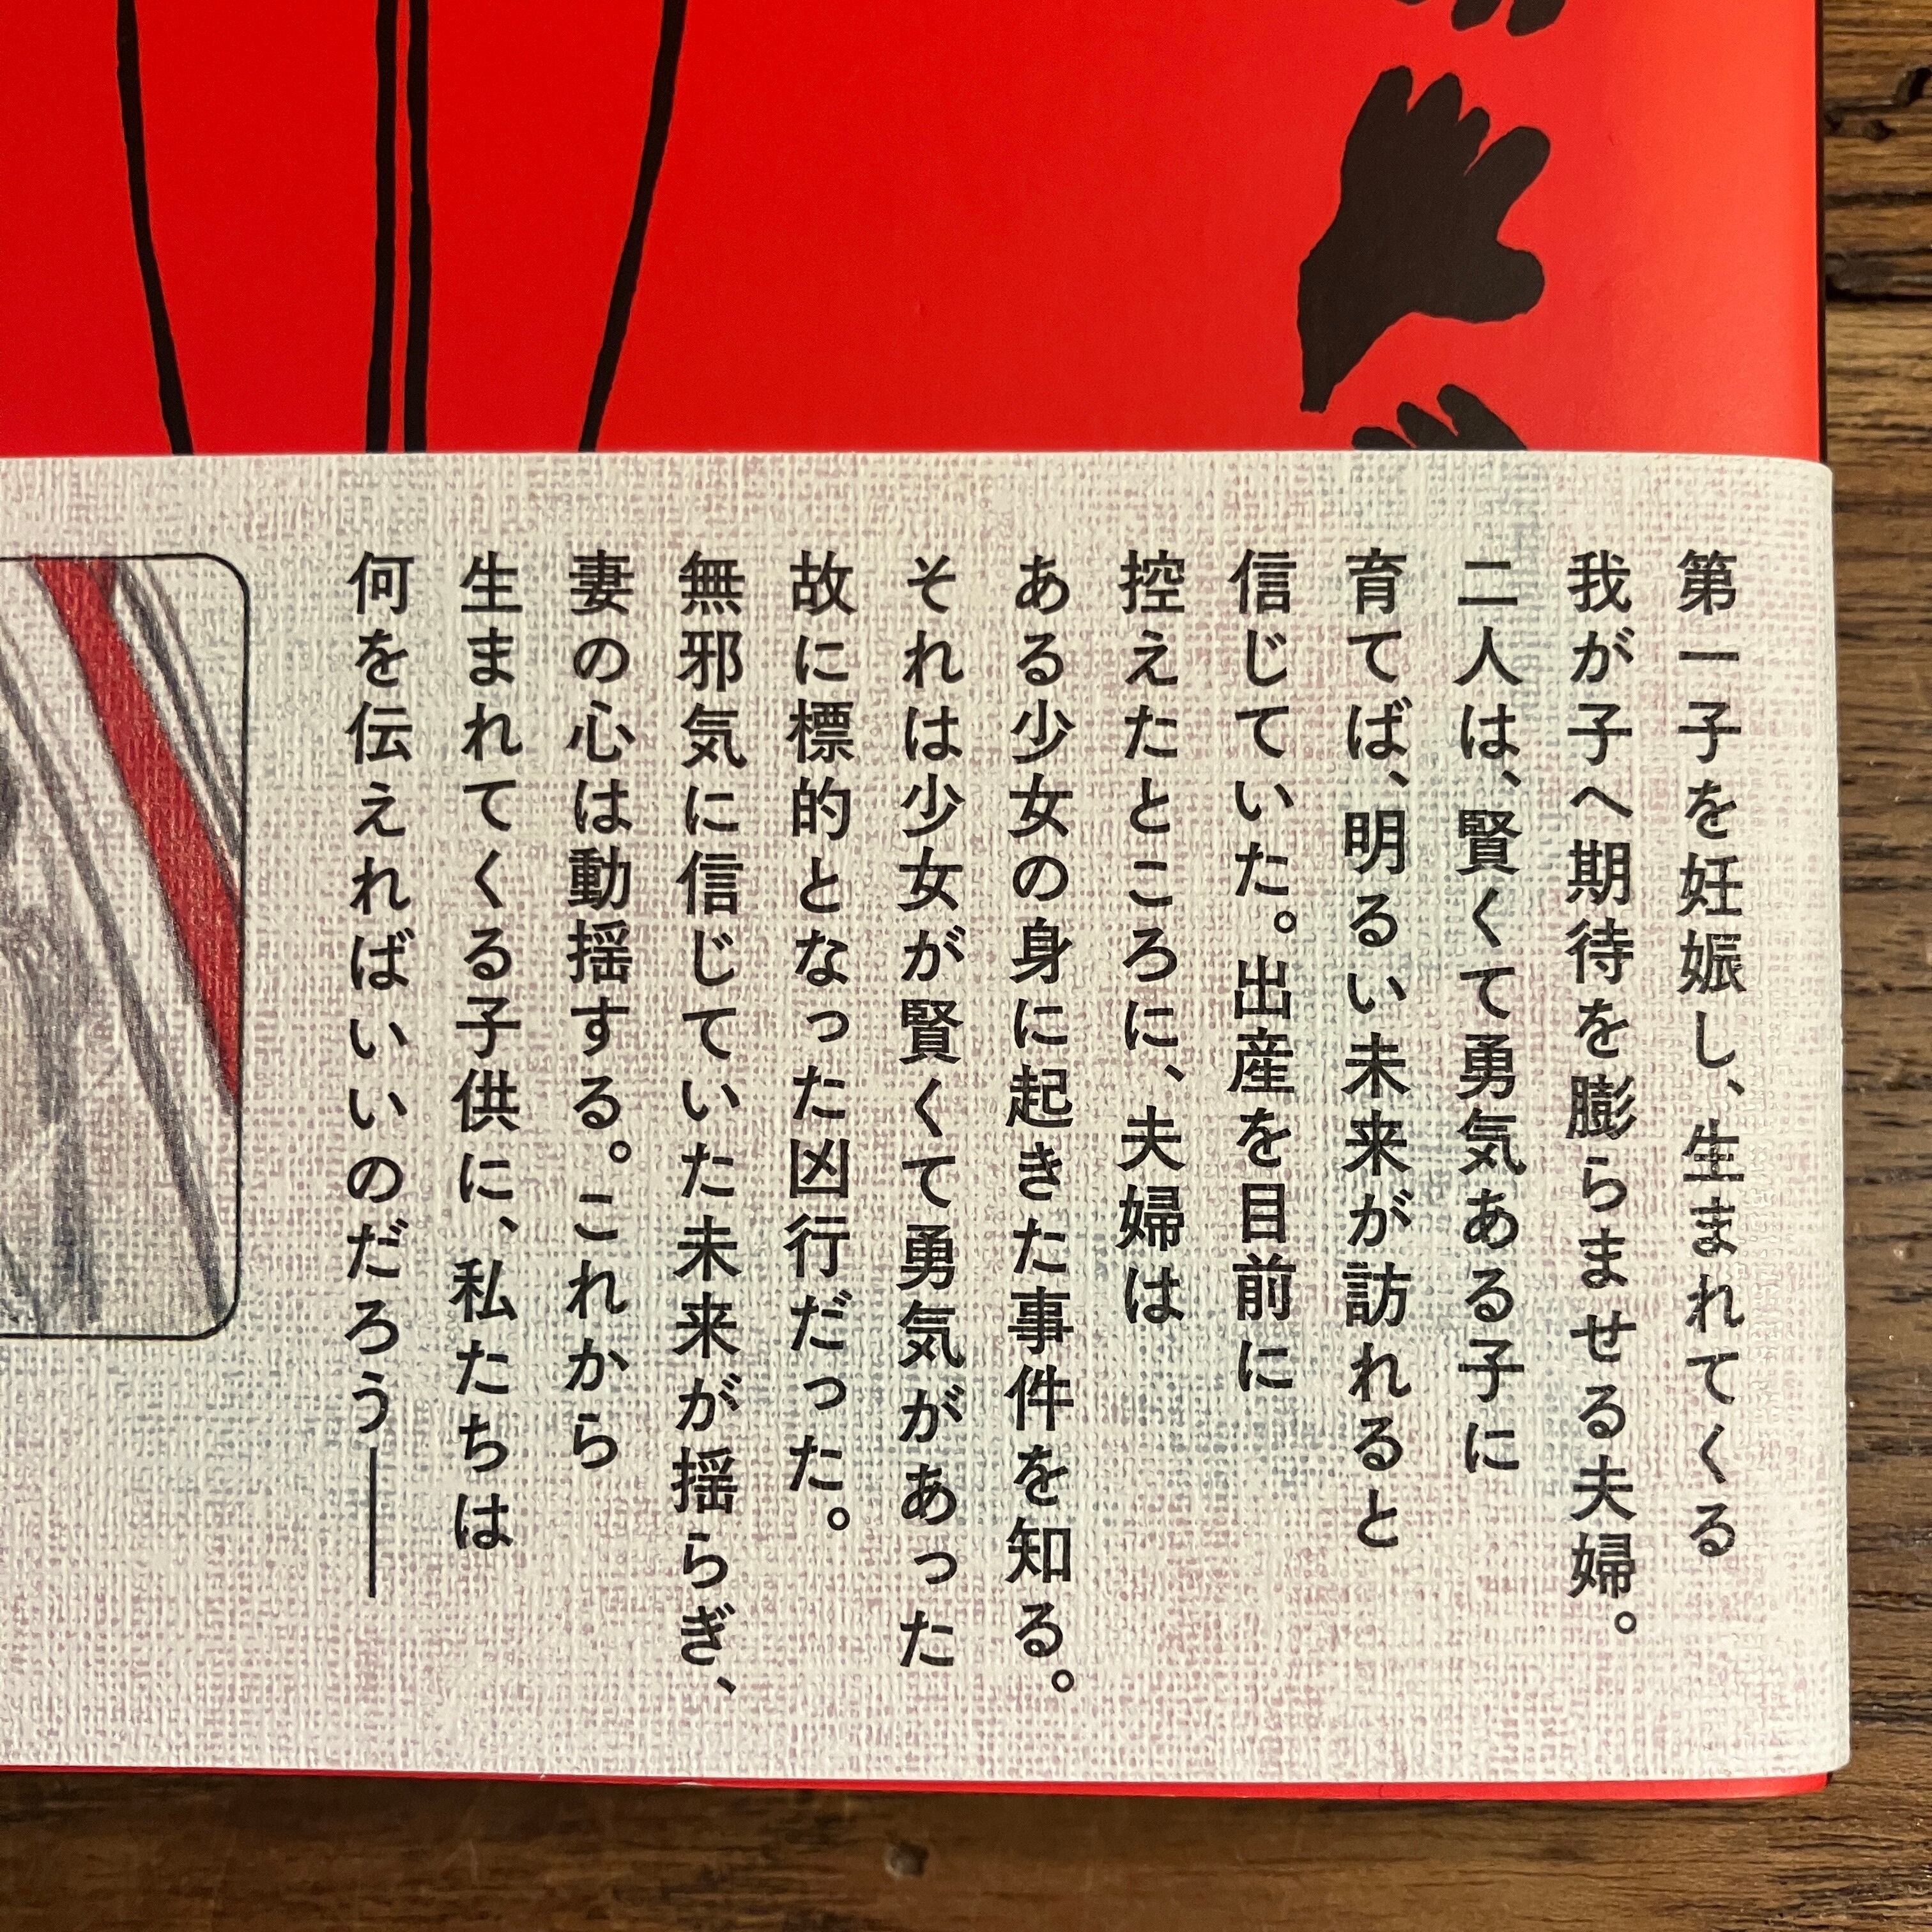 第一子を妊娠し、生まれてくる
我が子へ期待を膨らませる夫婦。
二人は、賢くて勇気ある子に
育てば、明るい未来が訪れると
信じていた。出産を目前に
控えたところに、夫婦は
ある少女の身に起きた事件を知る。
それは少女が賢くて勇気があった
故に標的となった凶行だった。
無邪気に信じていた未来が揺らぎ、
妻の心は動揺する。これから
生まれてくる子供に、私たちは
何を伝えればいいのだろう――